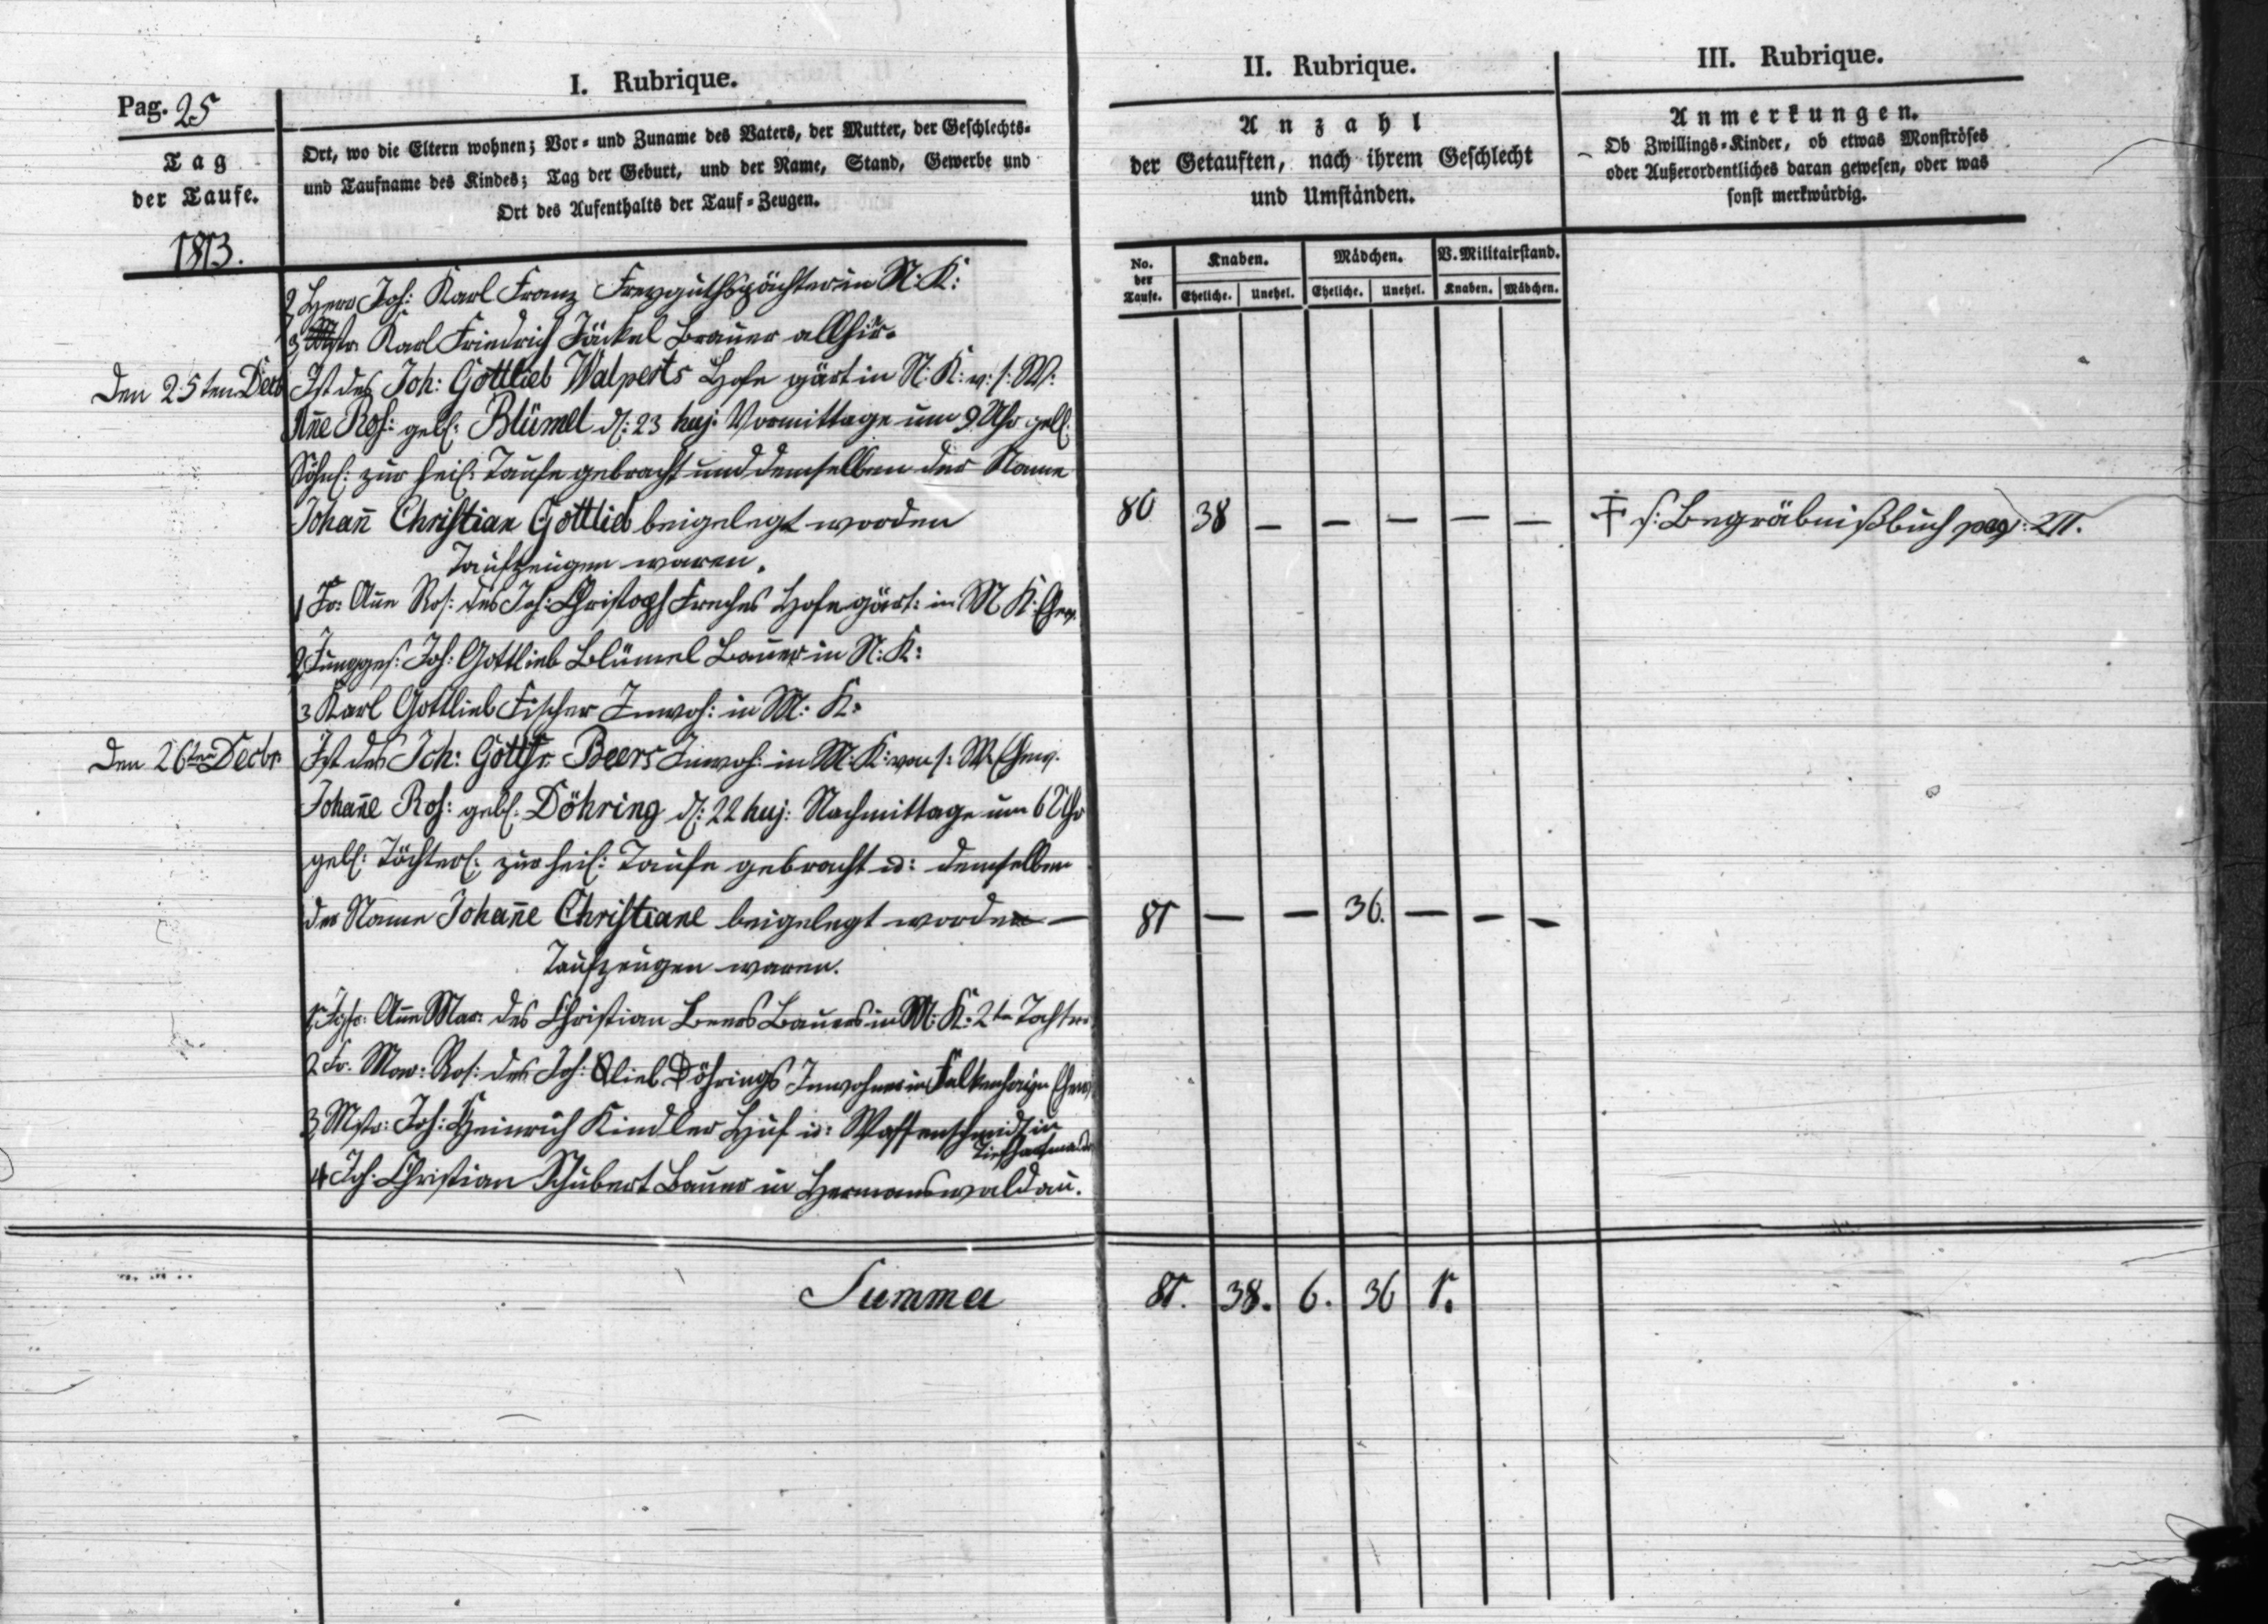 Pag. 25
Tag
der Taufe.
1813.
I. Rubrique.
Ort, wo die Eltern wohnen; Vor- und Zuname des Vaters, der Mutter, der Geschlechts-
und Taufname des Kindes; Tag der Geburt, und der Name, Stand, Gewerbe und
Ort des Aufenthalts der Tauf-Zeugen.
II. Rubrique.
Anzahl
der Getauften, nach ihrem Geschlecht
und Umständen.
No. der Taufe.
Knaben. Mädchen. V. Militairstand.
Eheliche. Unehel. Eheliche. Unehel. Knaben. Mädchen.
III. Rubrique.
Anmerkungen.
Ob Zwillings-Kinder, ob etwas Monströses
oder Außerordentliches daran gewesen, oder was
sonst merkwürdig.
2, Herr Joh: Karl Franz Freyguthspächter in N: K:
3, Mstr. Karl Friedrich Jäckel Brauer allhier.
Den 25ten Decb Ist des Joh: Gottlieb Walperts Hofe gärt in N: K: v: s: W:
Añe Ros: geb: Blümel d: 23 huj. Vormittags um 9 Uhr geb:
Söhnl: zur heil: Taufe gebracht und demselben der Name
Johañ Christian Gottlieb beigelegt worden 80 38 — — — — — ‡ s: Begräbnißbuch pag: 211.
Taufzeugen waren.
1, Fr: Añe Ros: des Joh: Christoph Hofe gärt: in M K:
2, Junggs: Joh: Gottlieb Blümel Bauer in N: K:
3 Karl Gottlieb Fischer Inwoh: in M: K:
Den 26ten Decbr Ist des Joh: Gottfr Beers Inwoh: in M: K: von s: W
Johañe Ros: geb: Döhring d: 22 huj: Nachmittags um 6 Uhr
geb: Töchterl: zur heil: Taufe gebracht u: demselben
der Name Johañe Christiane beigelegt worden — 81 — — 36. — — —
Taufzeugen waren.
1, Jgfr: Añe Mar: des Christian Beers Bauers in M: K: 2te Tochter
2 Fr. Mar: Ros: des Joh: Glieb Döhrings Inwohner in Falkenhayn
3, Mstr: Joh: Heinrich Kindler Huf u: Waffenschmidt in
4 Joh: Christian Schubert Bauer in Hermanswaldau.
Summa 81. 38. 6. 36 1.